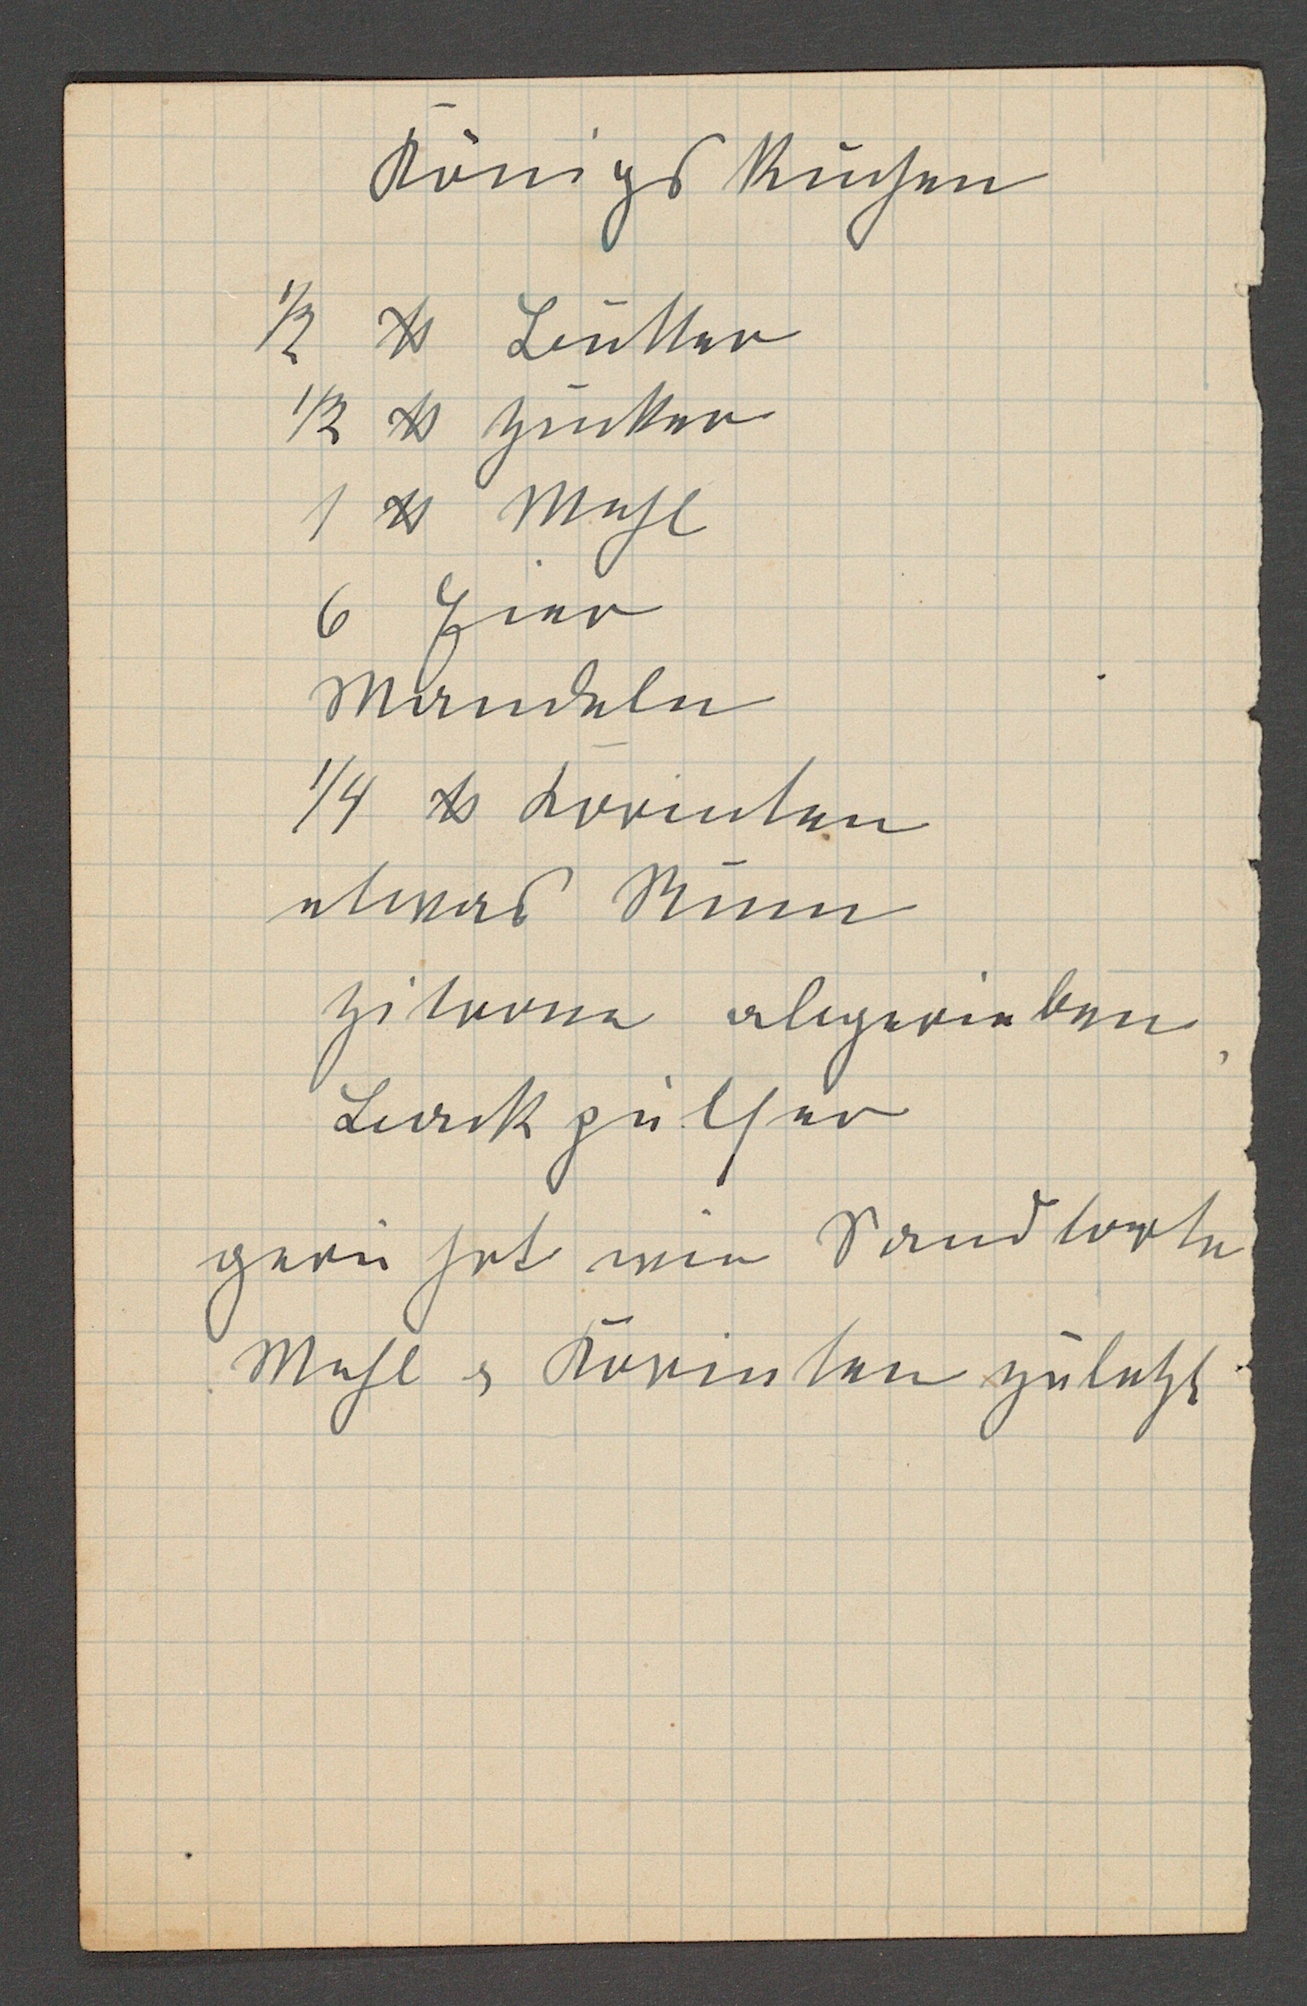 Königs Kuchen
1/2 ℔ Butter
1/2 ℔ Zucker
1 ℔ Mehl
6 Eier
Mandeln
1/4 ℔ Korinten
etwas Rum
Zitrone abgerieben,
Backpulfer
gerührt wie Sandtorte
Mehl & Korinten zuletzt